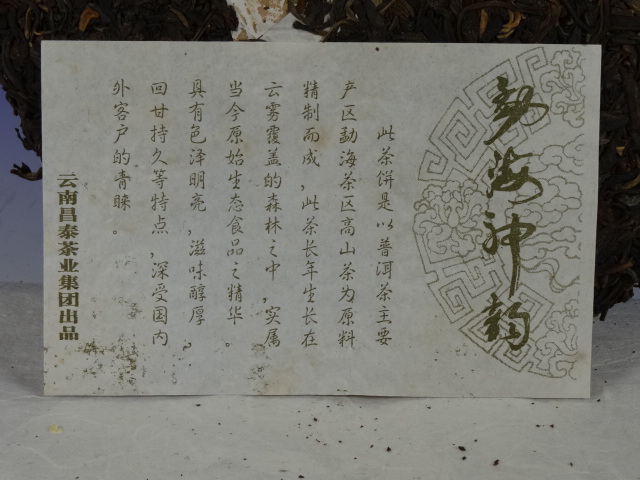 勐海神韵
此茶饼是以普洱茶主要
产区勐海茶区高山茶为原料
精制而成，此茶长年生长在
云雾覆盖的森林之中，实属
当今原始生态食品之精华。
具有色泽明亮，滋味醇厚，
回甘持久等特点，深受国内
外客户的青睐。
云南昌泰茶业集团出品